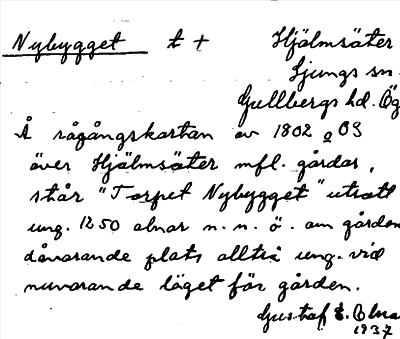 Nybygget t + Hjälmsäter
Ljungs sn.
Gullbergs hd. Ög
Å rågångskartan av 1802 a ÖS
över Hjälmsäter mfl. gårdar,
står "Torpet Nybygget" utsatt
ung. 1250 alnar n. n. ö. om gården
dåvarande plats alltså ung. vid
nuvarande läget för gården.
Gustaf E. 
1937